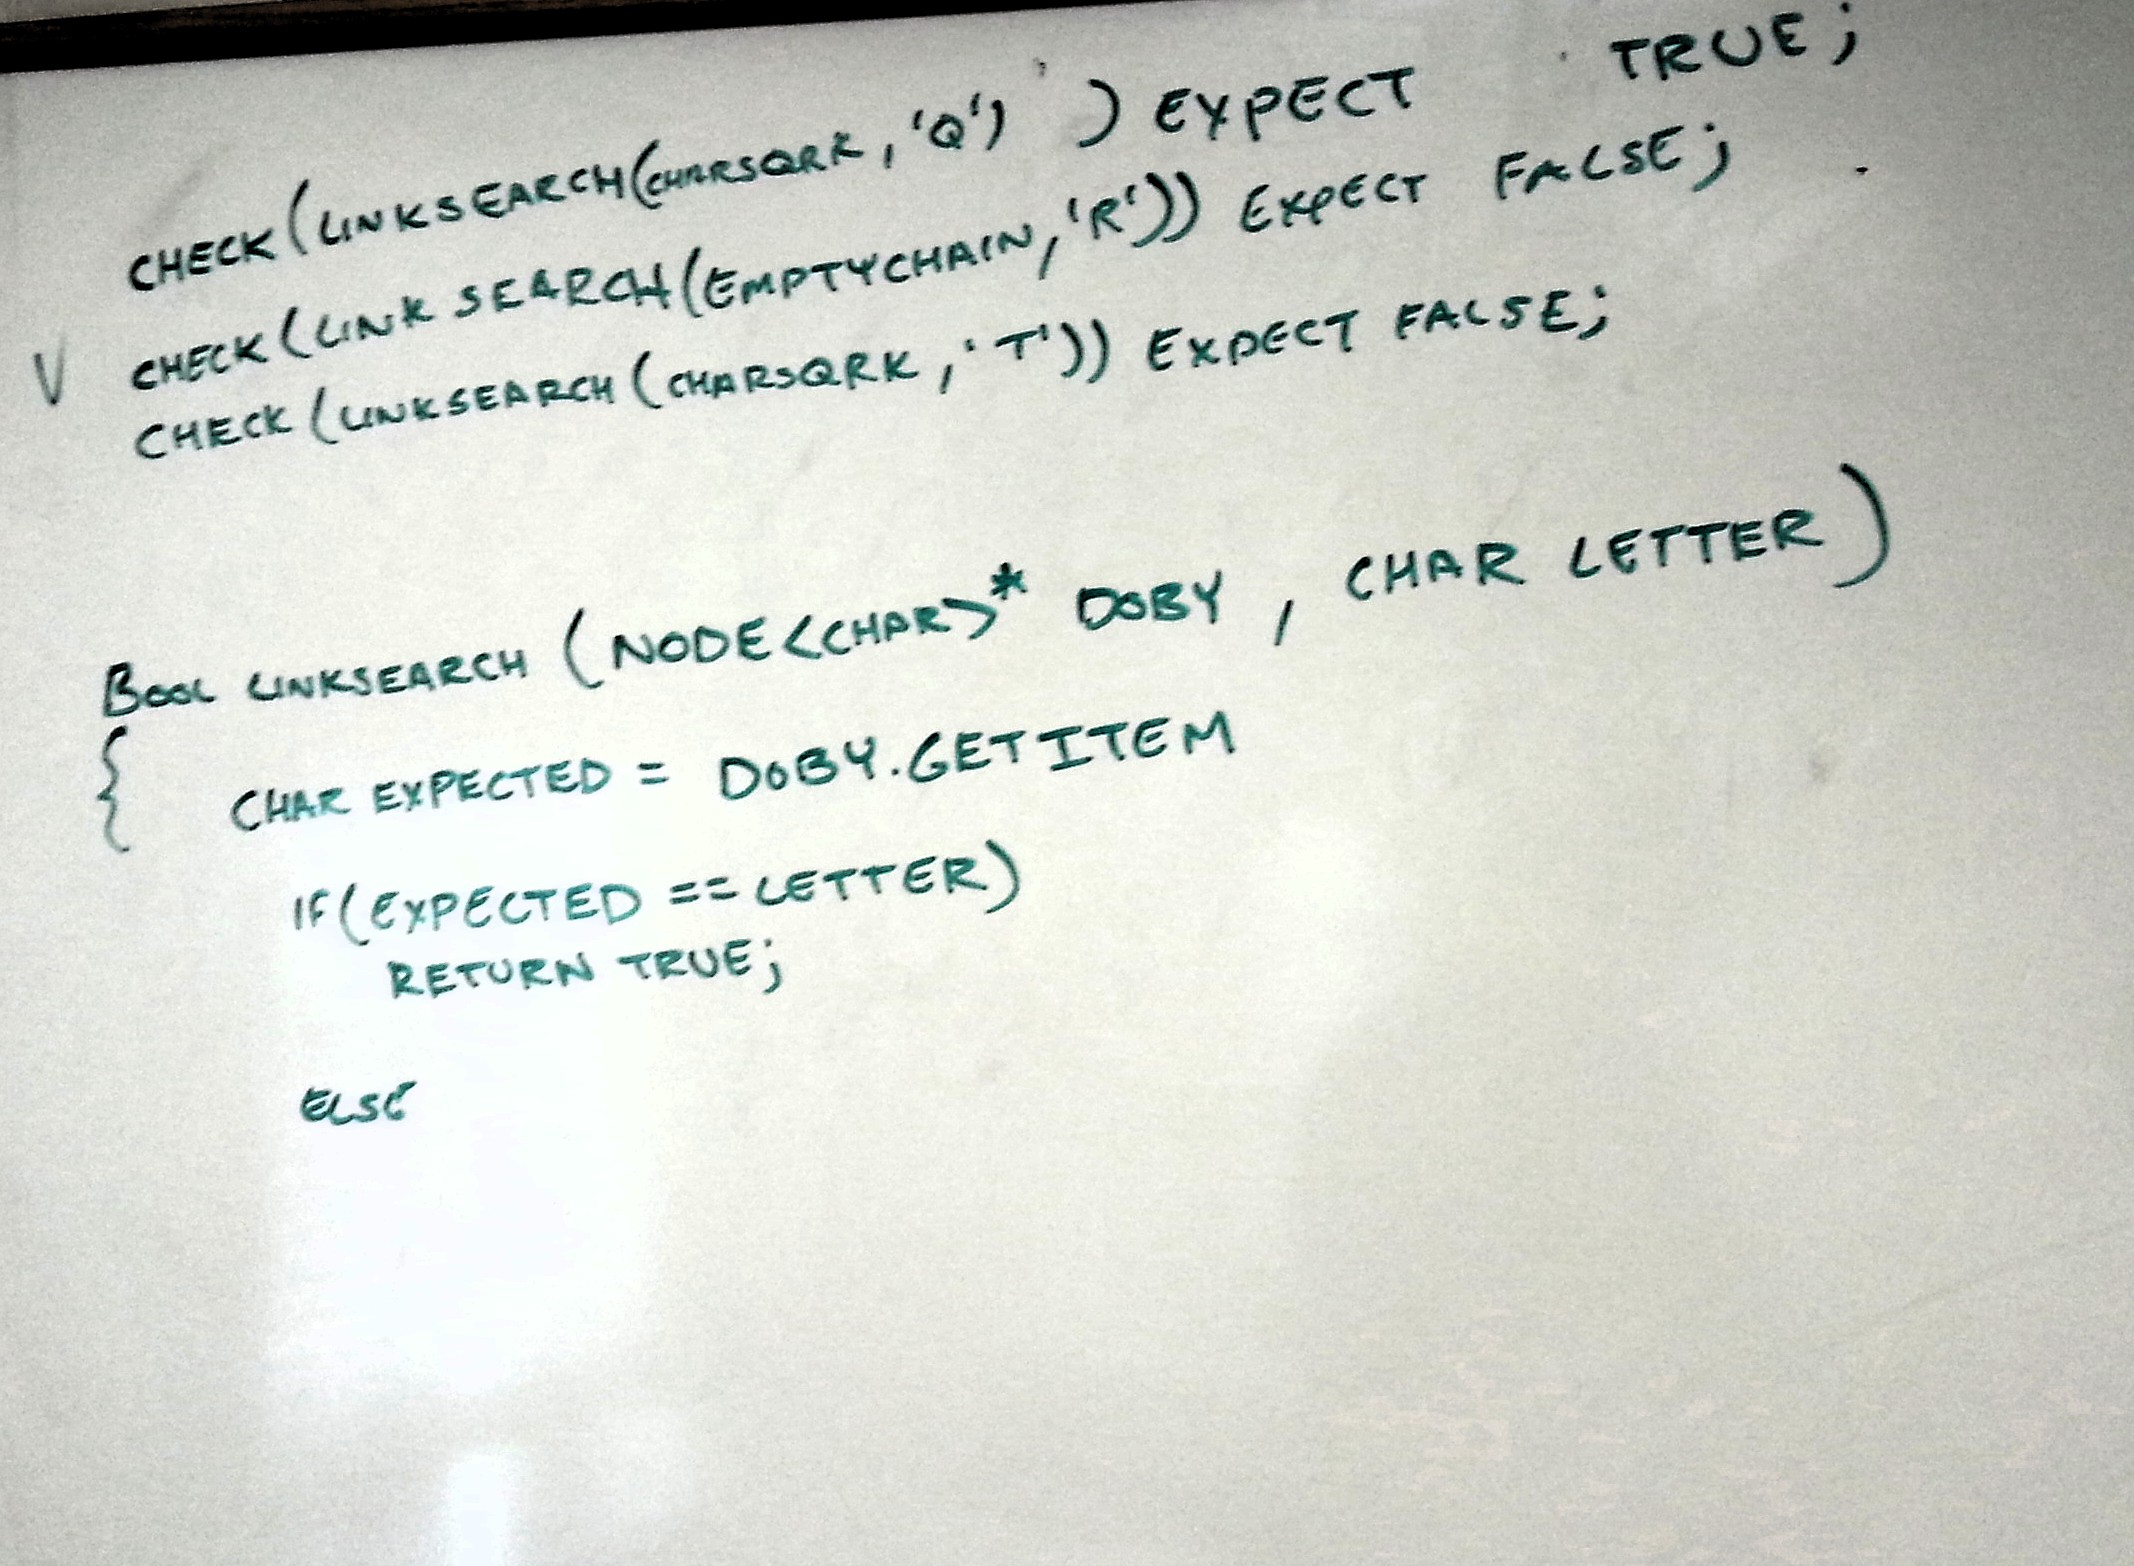 CHECK(LINKSEARCH(CHARSQRK, 'Q') ) EXPECT TRUE;
V CHECK(LINK SEARCH(EMPTYCHAIN, 'R')) EXPECT FALSE;
CHECK(LINKSEARCH(CHARSQRK, 'T')) EXPECT FALSE;
BOOL LINKSEARCH (NODE<CHAR>* DOBY, CHAR LETTER)
{ CHAR EXPECTED = DOBY.GETITEM
IF(EXPECTED == LETTER)
RETURN TRUE;
ELSE